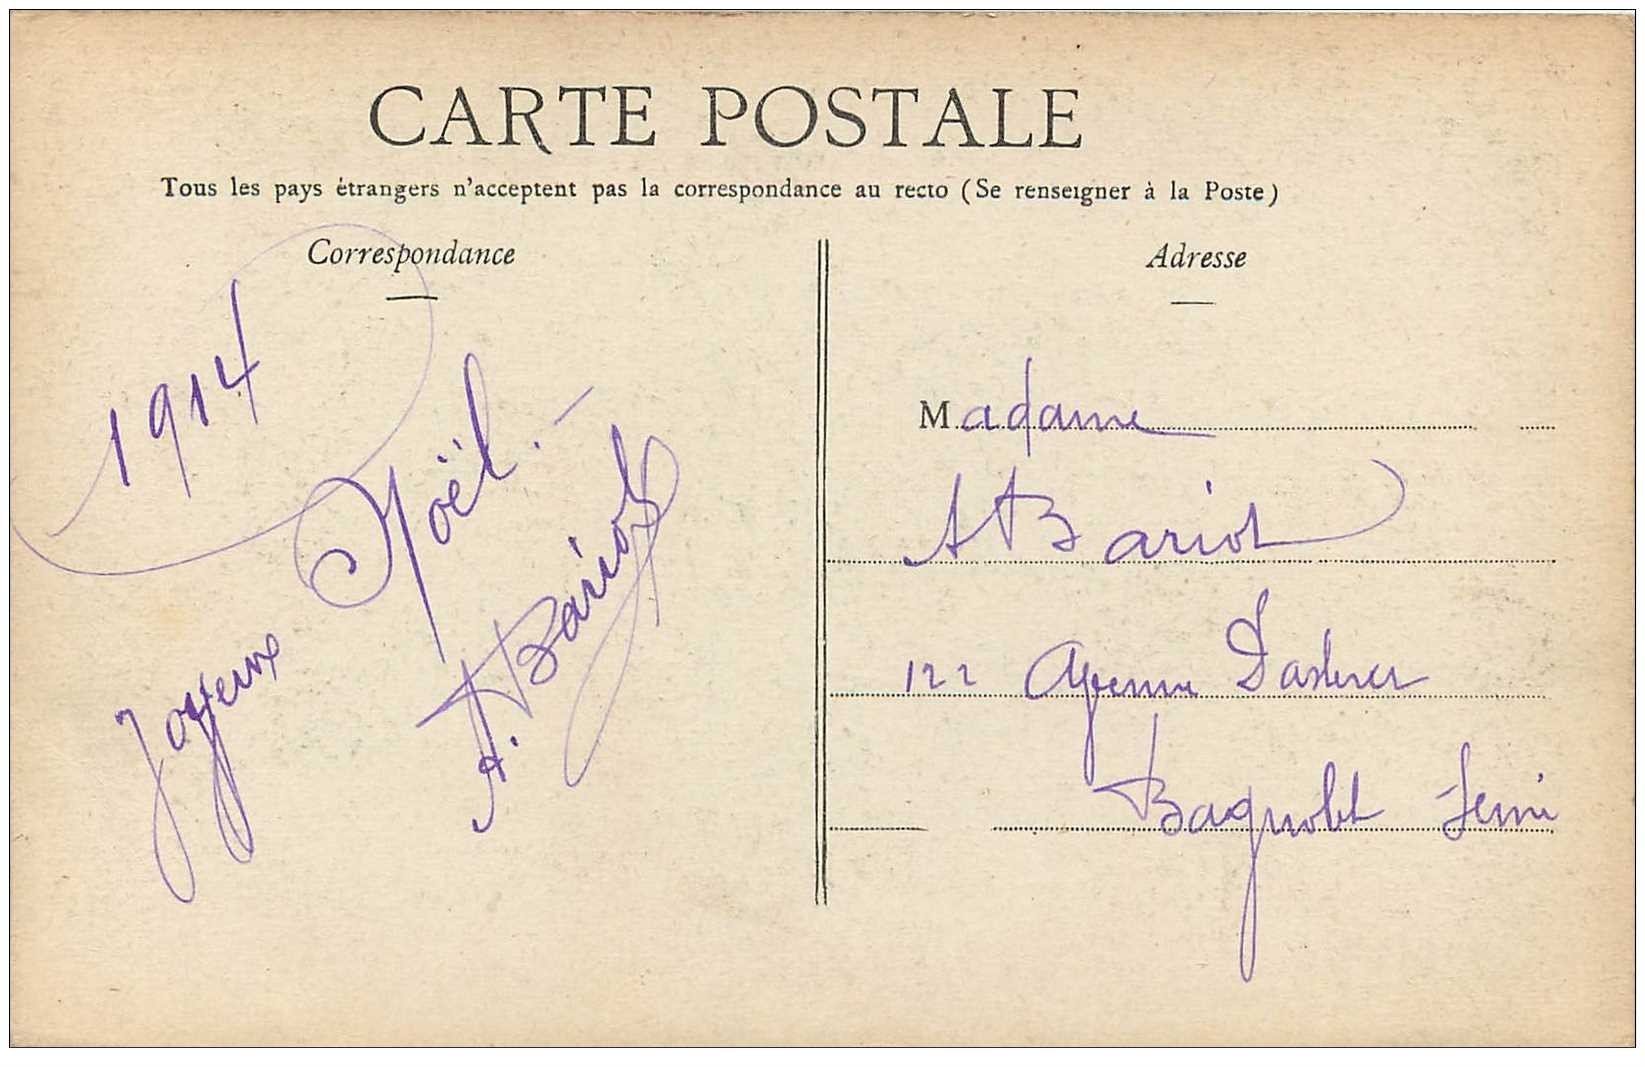 CARTE POSTALE
Tous les pays étrangers n'acceptent pas la correspondance au recto (Se renseigner à la Poste)
Correspondance
1914
Joyeux Noël. -
A. Bariol
Adresse
Madame
A Bariol
122 Avenue Pasteur
Bagnolet Seine